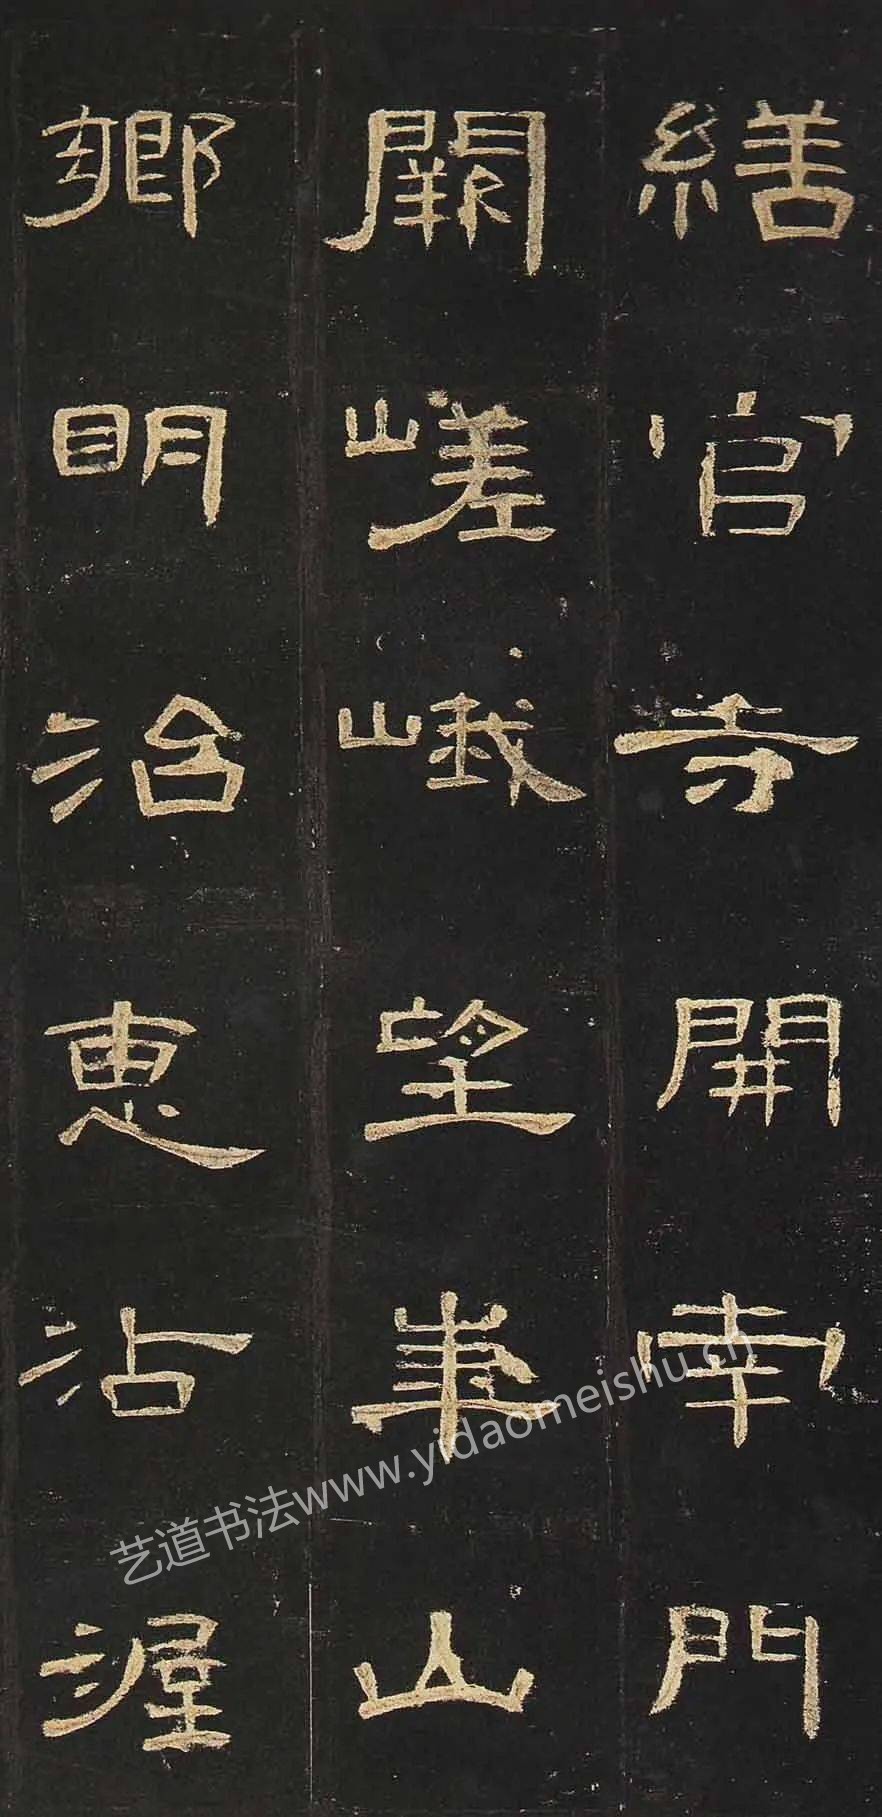 繕官寺開南門
闕嵯峨望華山
鄉明治惠沾渥
艺道书法www.yidaomeishu.cn